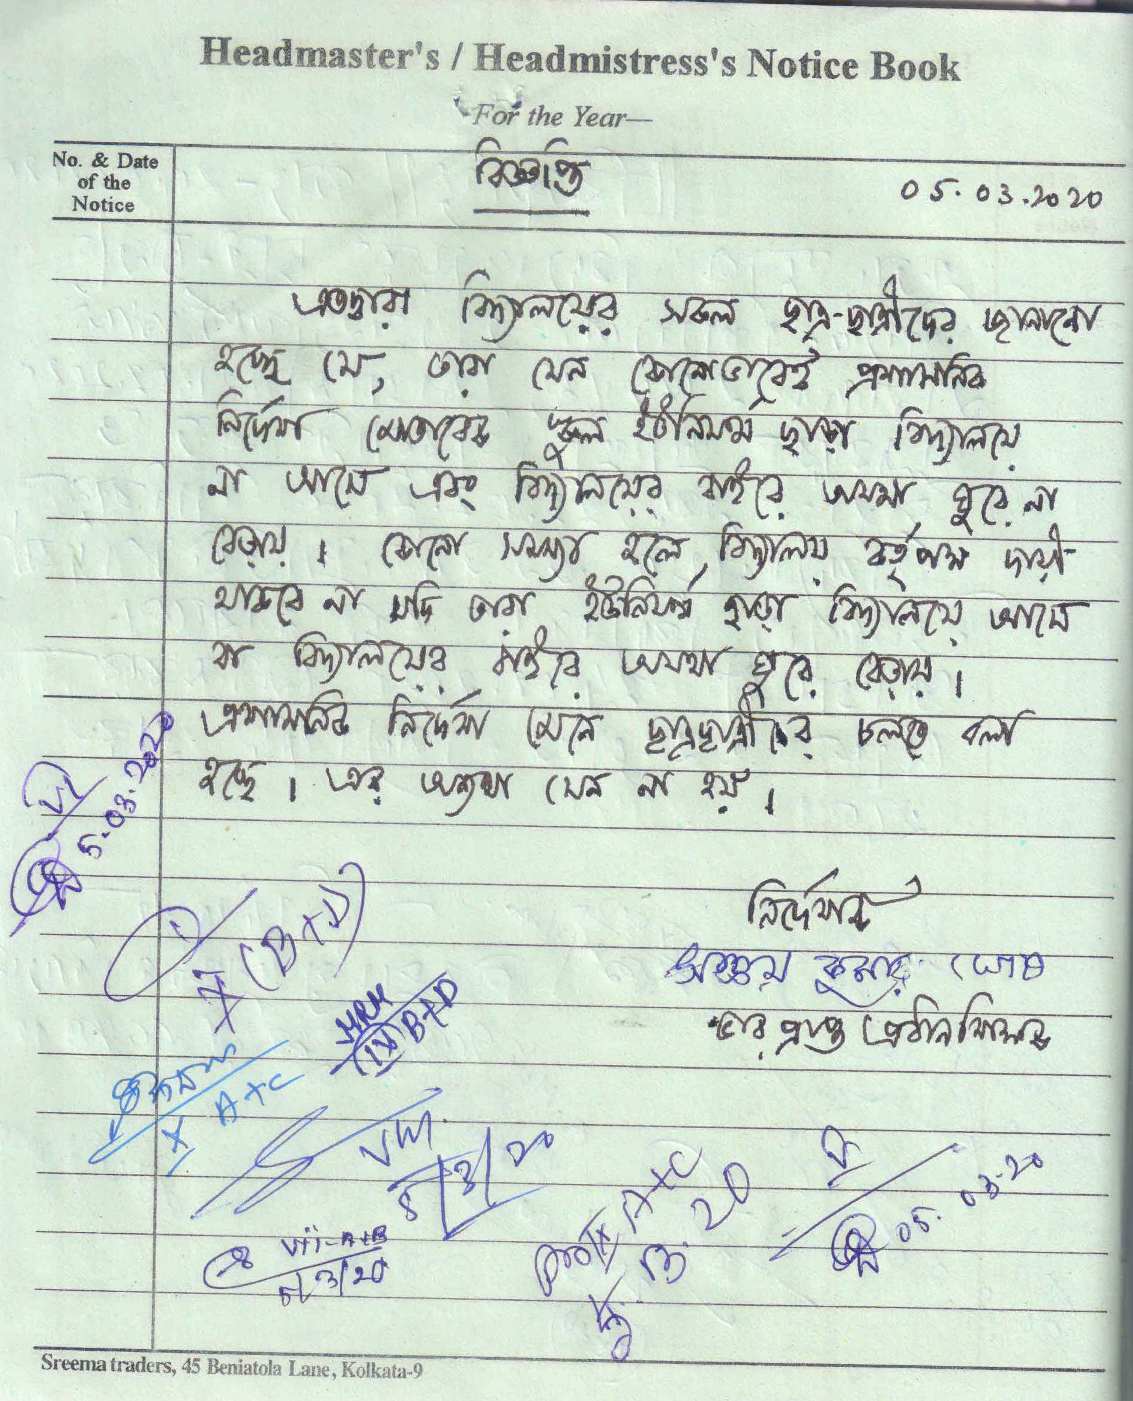 Headmaster's / Headmistress's Notice Book
For the Year—
No. & Date
of the
Notice
বিজ্ঞপ্তি
05.03.2020
এতদ্বারা বিদ্যালয়ের সকল ছাত্র-ছাত্রীদের জানানো
হচ্ছে যে, তারা যেন কোনোভাবেই প্রশাসনিক
নির্দেশ মোতাবেক স্কুল ইউনিফর্ম ছাড়া বিদ্যালয়ে
না আসে এবং বিদ্যালয়ের বাইরে অযথা ঘুরে না
বেড়ায়। কোনো সমস্যা হলে বিদ্যালয় কর্তৃপক্ষ দায়ী
থাকবে না যদি তারা ইউনিফর্ম ছাড়া বিদ্যালয়ে আসে
বা বিদ্যালয়ের বাইরে অযথা ঘুরে বেড়ায়।
প্রশাসনিক নির্দেশ মেনে ছাত্রছাত্রীদের চলতে বলা
হচ্ছে। এর অন্যথা যেন না হয়।
নির্দেশক
কুমার ঘোষ
ভারপ্রাপ্ত প্রধানশিক্ষক
VI
5.03.2020
X (B+D)
(IX) B+D
X A+C
VIII
5/3/20
VII-A+B
5/3/20
IX A+C
5.3.20
V
05.03.20
Sreema traders, 45 Beniatola Lane, Kolkata-9